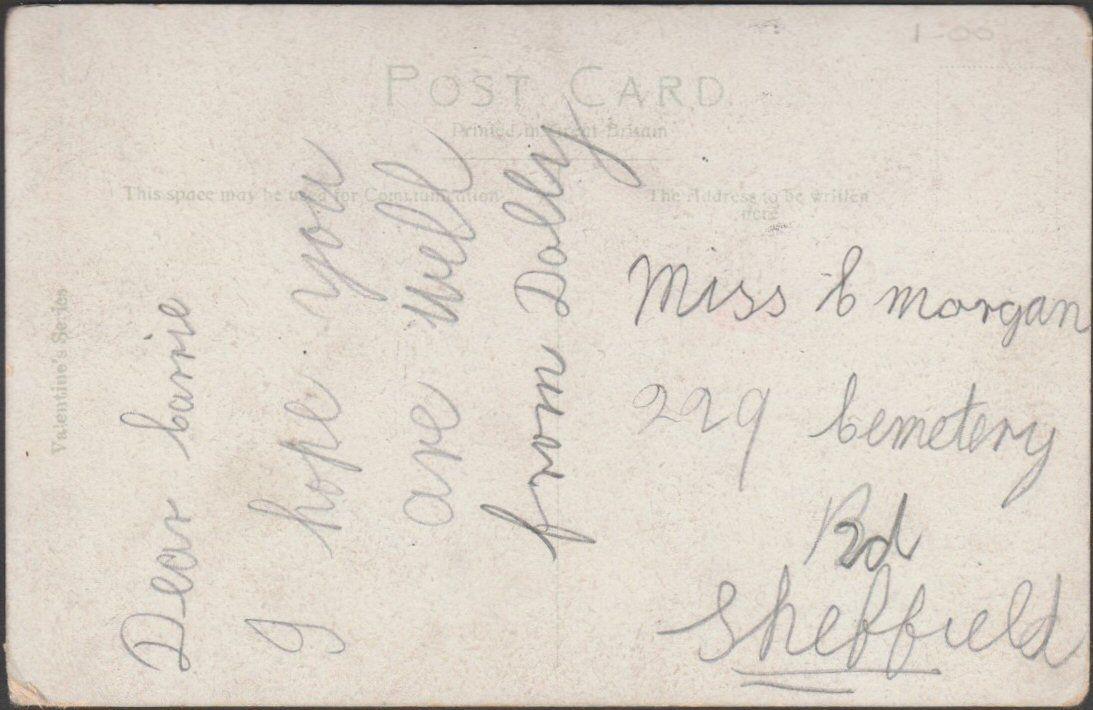 1-00
POST CARD
Printed in Great Britain
This space may be used for Communication
The Address to be written
here
Valentine's Series
Dear Carrie
I hope you
are well
from Dolly
Miss C Morgan
229 Cemetery
Rd
Sheffield